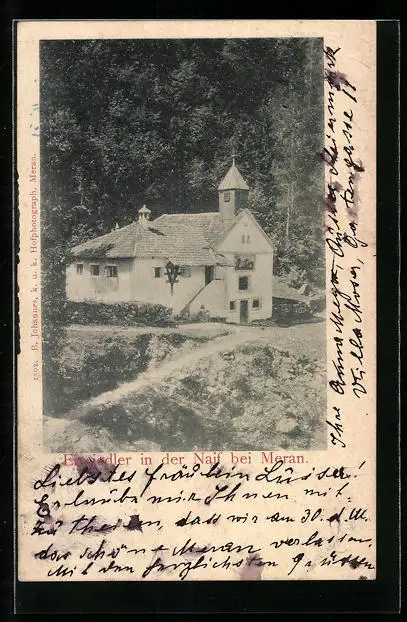 1502. B. Johannes, k. u. k. Hofphotograph, Meran.
Einsiedler in der Naif bei Meran.
Liebstes Fräulein Luiser!
Erlaube mir Ihnen mit-
zu theilen, dass wir am 30. d. M.
das schöne Meran verlassen.
Mit den herzlichsten Grüssen
Ihre Anna
Villa Moser, Gartengasse 11